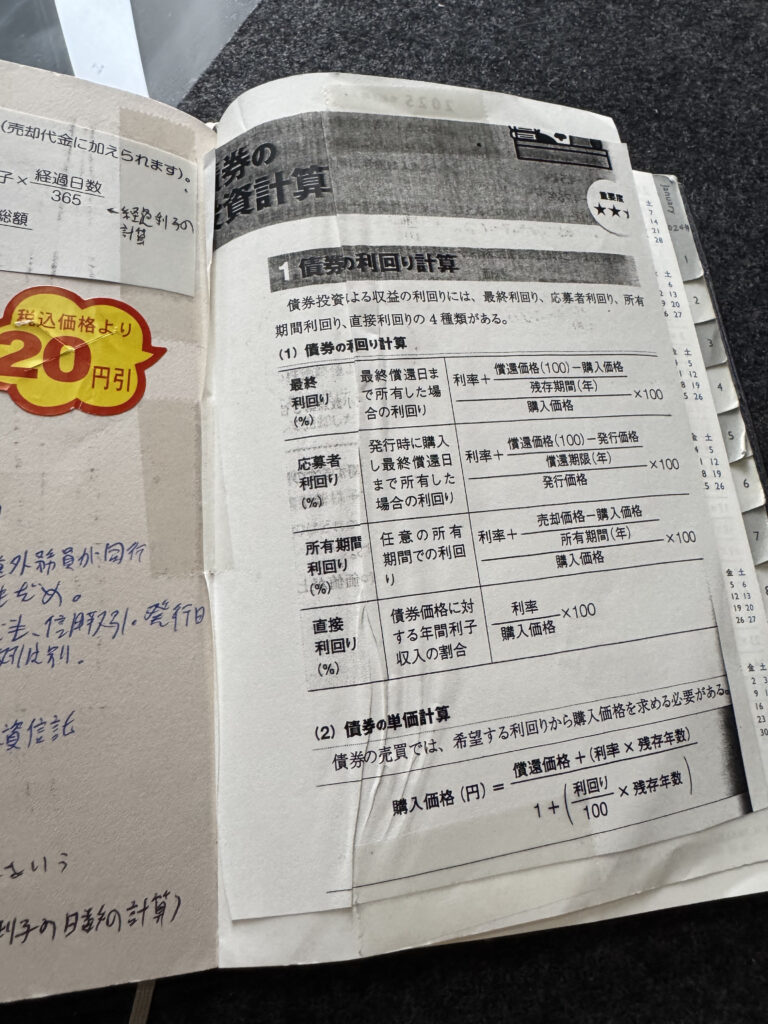 (売却代金に加えられます)。
子×経過日数
365
←経過利子の
計算
総額
税込価格より
20円引
外務員が同行
もだめ。
も、信用取引・発行日
は別.
資信託
という
利子の日数の計算)
2025
券の
投資計算
重要度
★★
1 債券の利回り計算
債券投資による収益の利回りには、最終利回り、応募者利回り、所有
期間利回り、直接利回りの4種類がある。
(1) 債券の利回り計算
最終
利回り
(%)
最終償還日ま
で所有した場
合の利回り
利率+
償還価格(100)−購入価格
残存期間(年)
購入価格
×100
応募者
利回り
(%)
発行時に購入
し最終償還日
まで所有した
場合の利回り
利率+
償還価格(100)−発行価格
償還期限(年)
発行価格
×100
所有期間
利回り
(%)
任意の所有
期間での利回
り
利率+
売却価格−購入価格
所有期間(年)
購入価格
×100
直接
利回り
(%)
債券価格に対
する年間利子
収入の割合
利率
購入価格
×100
(2) 債券の単価計算
債券の売買では、希望する利回りから購入価格を求める必要がある。
購入価格(円)=
償還価格+(利率×残存年数)
1+(利回り
100
×残存年数)
January
1
2
3
4
5
6
7
土
7
14
21
28
土
6
13
20
27
金 土
5 6
12 13
19 20
26 27
金 土